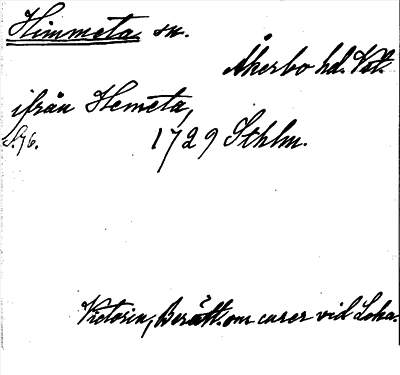 Himmeta sn.
Åkerbo hd. Vstl.
ifrån Hemeta,
S. 76. 1729 Sthlm.
Victorin, Berätt. om curer vid Loka.